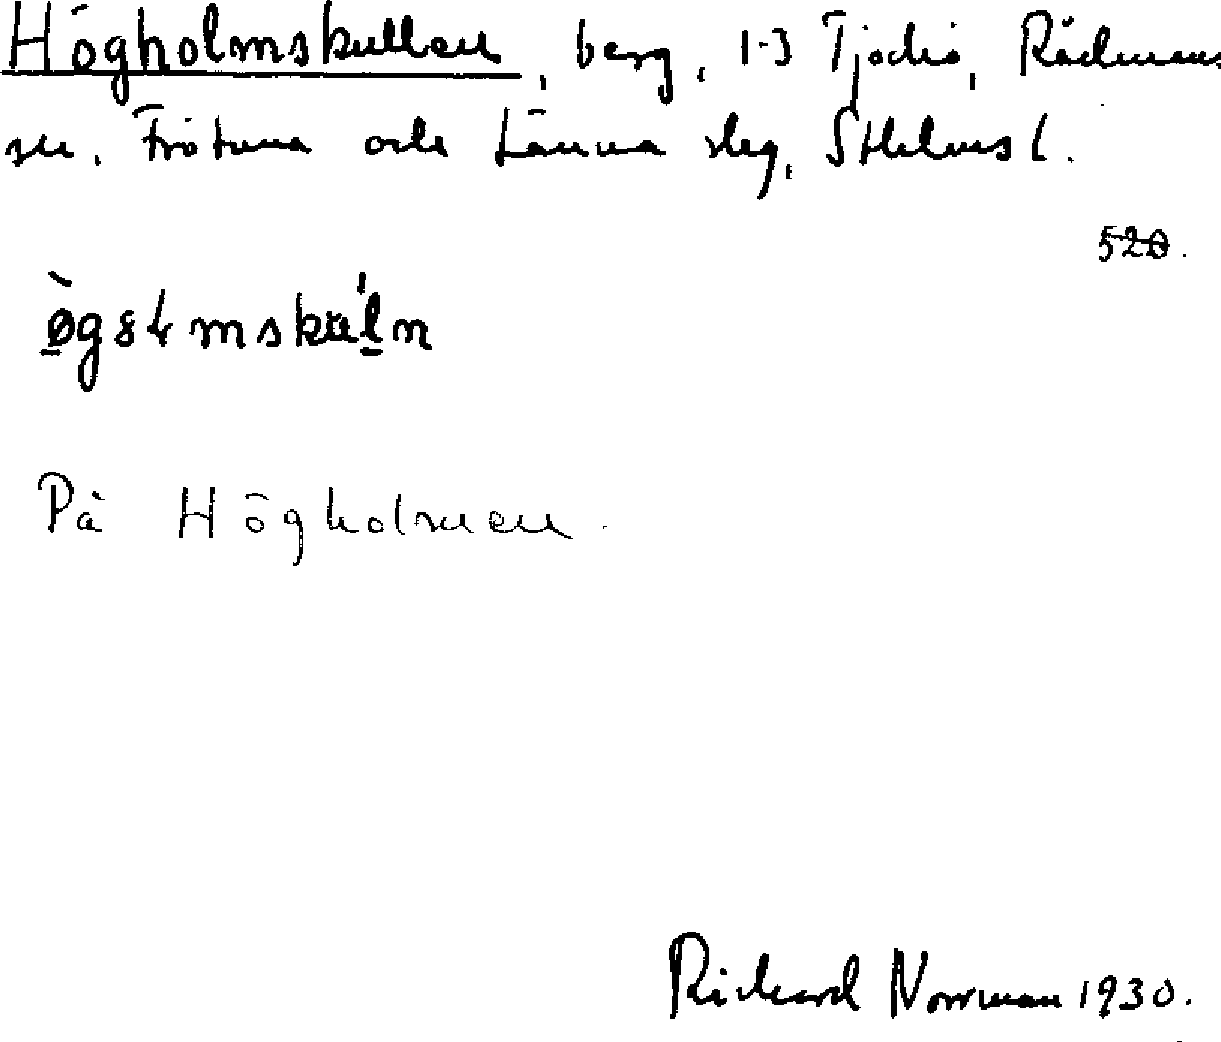 Högholmskullen, berg, 1-3 Tjockö, Rådmans
sn. Frötuna och Länna slg, Sthlms l.
520.
På Högholmen.
Rickard Norrman 1930.